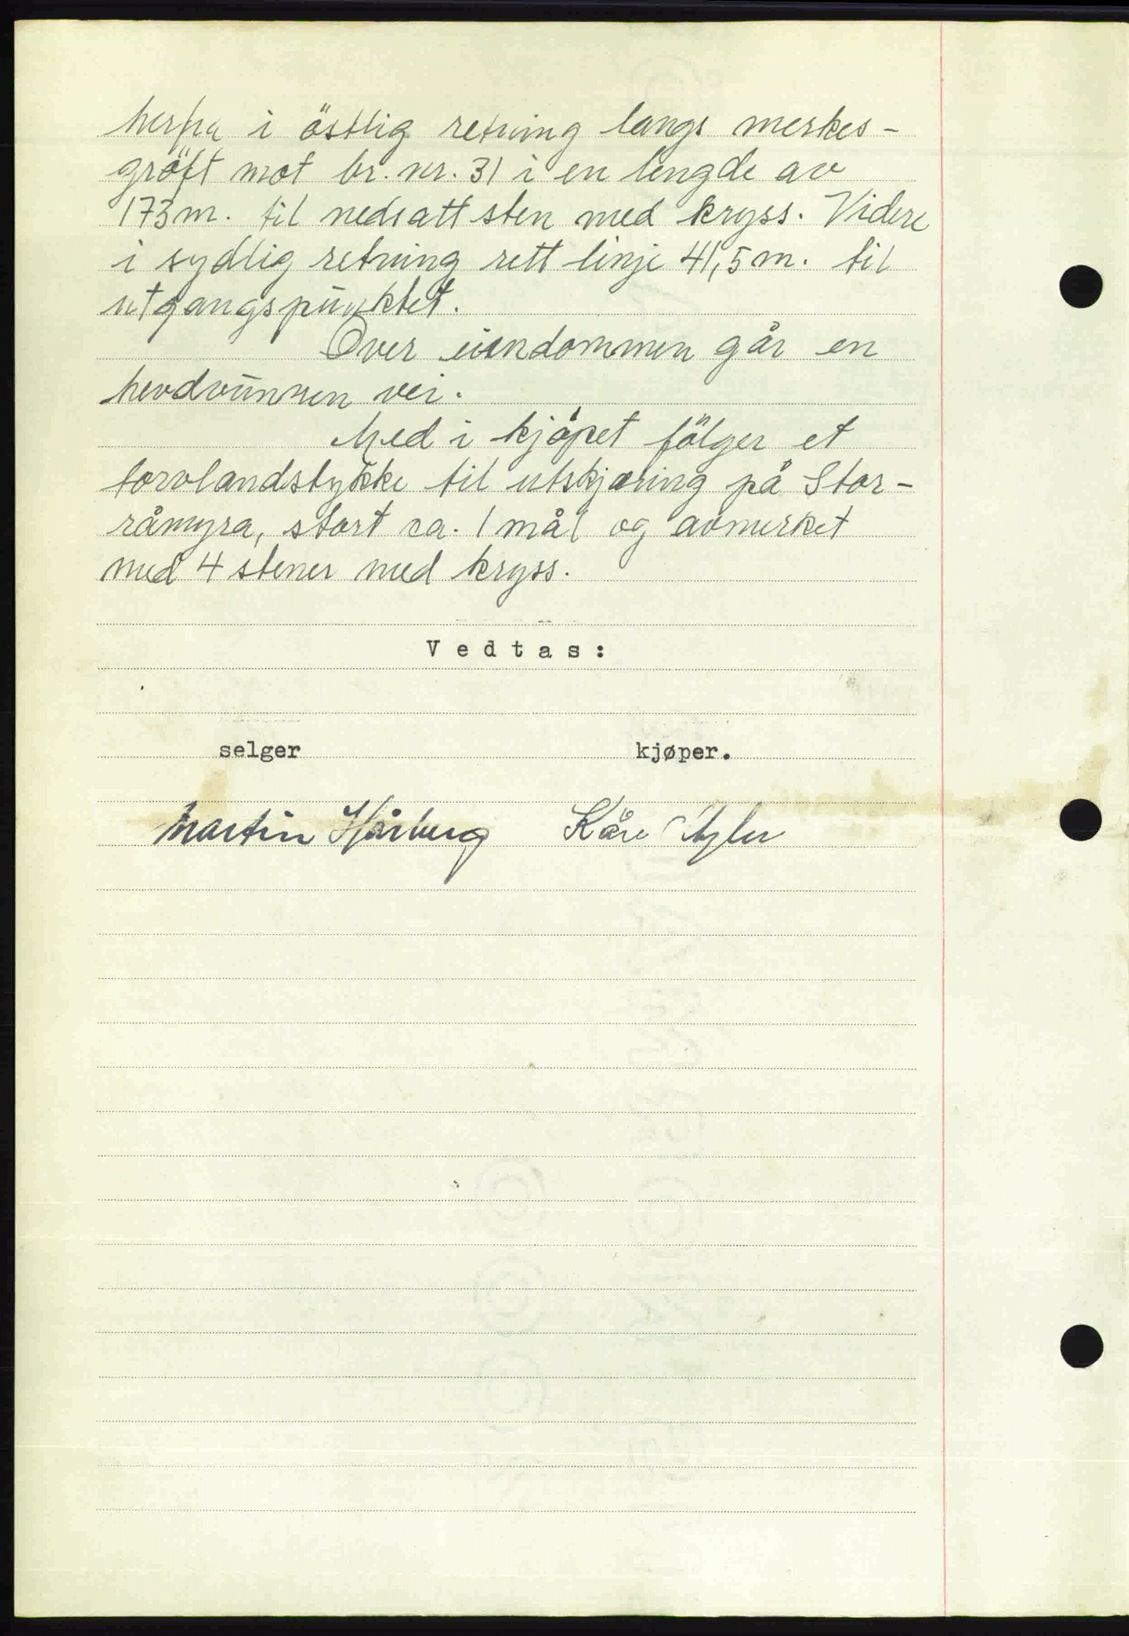 herfra i östlig retning langs merkes-
gröft mot br. nr. 31 i en lengde av
173 m. til nedsatt sten med kryss. Videre
i sydlig retning rett linje 41,5 m. til
utgangspunktet.
Over eiendommen går en
hevdvunnen vei.
Med i kjöpet fölger et
torvlandstykke til utskjæring på Stor-
råmyra, stort ca. 1 mål og avmerket
med 4 stener med kryss.
Vedtas:
selger kjøper.
Martin Hårberg Kåre